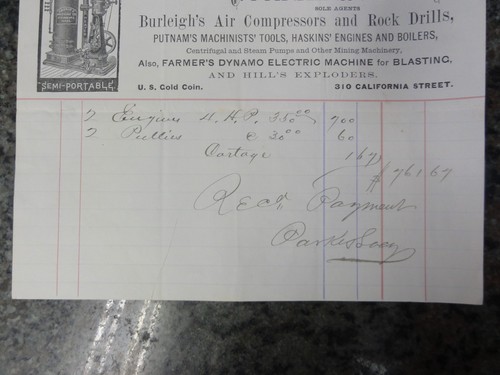 SOLE AGENTS
Burleigh's Air Compressors and Rock Drills,
PUTNAM'S MACHINISTS' TOOLS, HASKINS' ENGINES AND BOILERS,
Centrifugal and Steam Pumps and Other Mining Machinery,
Also, FARMER'S DYNAMO ELECTRIC MACHINE for BLASTING,
AND HILL'S EXPLODERS.
SEMI-PORTABLE
U. S. Gold Coin. 310 CALIFORNIA STREET.
2 Engines 4. H. P. 350 00 700
2 Pullies @ 30 00 60
Cartage 1 67
$ 761 67
Recd. Payment